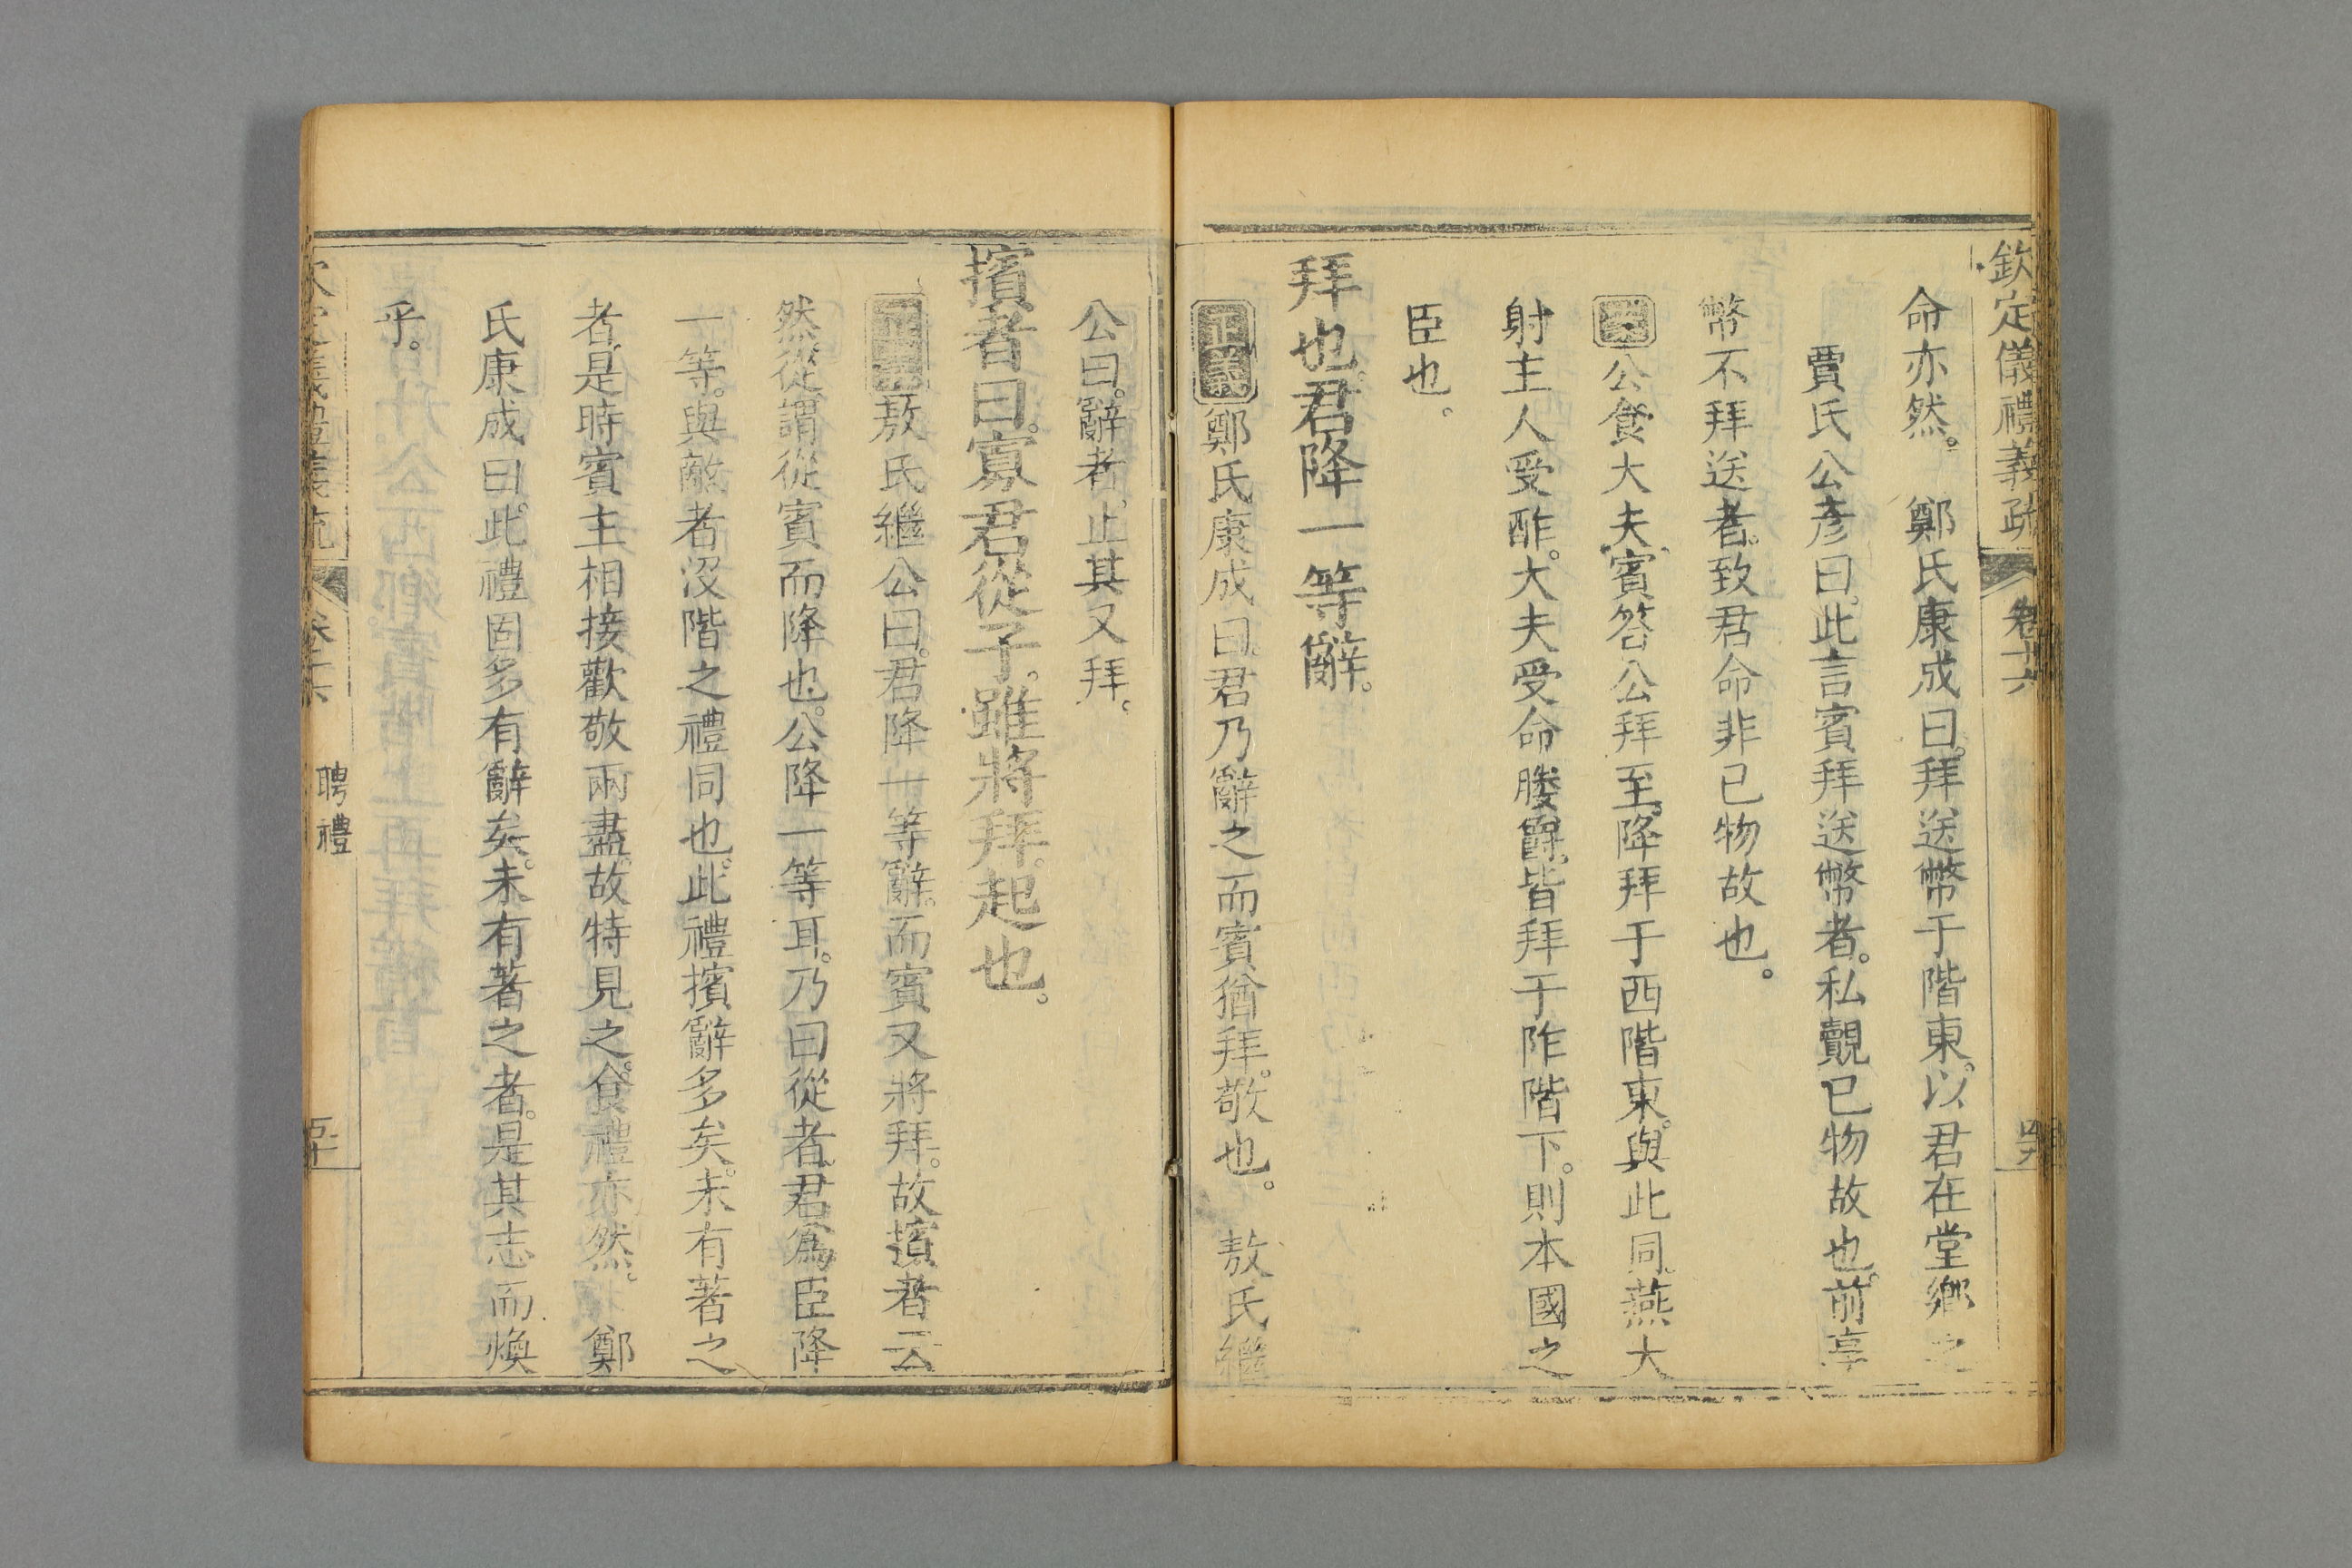 欽定儀禮義疏 卷十六
命亦然。 鄭氏康成曰。拜送幣于階東。以君在堂鄉之
賈氏公彥曰。此言賓拜送幣者。私覿已物故也。前享
幣不拜送者。致君命非已物故也。
公食大夫賓答公拜至。降拜于西階東。與此同。燕大
射主人受酢。大夫受命媵爵。皆拜于阼階下。則本國之
臣也。
拜也。君降一等辭。
正義鄭氏康成曰。君乃辭之而賓猶拜。敬也。 敖氏繼
公曰。辭者。止其又拜。
擯者曰。寡君從子。雖將拜。起也。
正義敖氏繼公曰。君降一等辭。而賓又將拜。故擯者云
然。從謂從賓而降也。公降一等耳。乃曰從者。君爲臣降
一等。與敵者沒階之禮同也。此禮擯辭多矣。未有著之
者。是時賓主相接。歡敬兩盡。故特見之。食禮亦然。 鄭
氏康成曰。此禮固多有辭矣。未有著之者。是其志而煥
乎。
聘禮